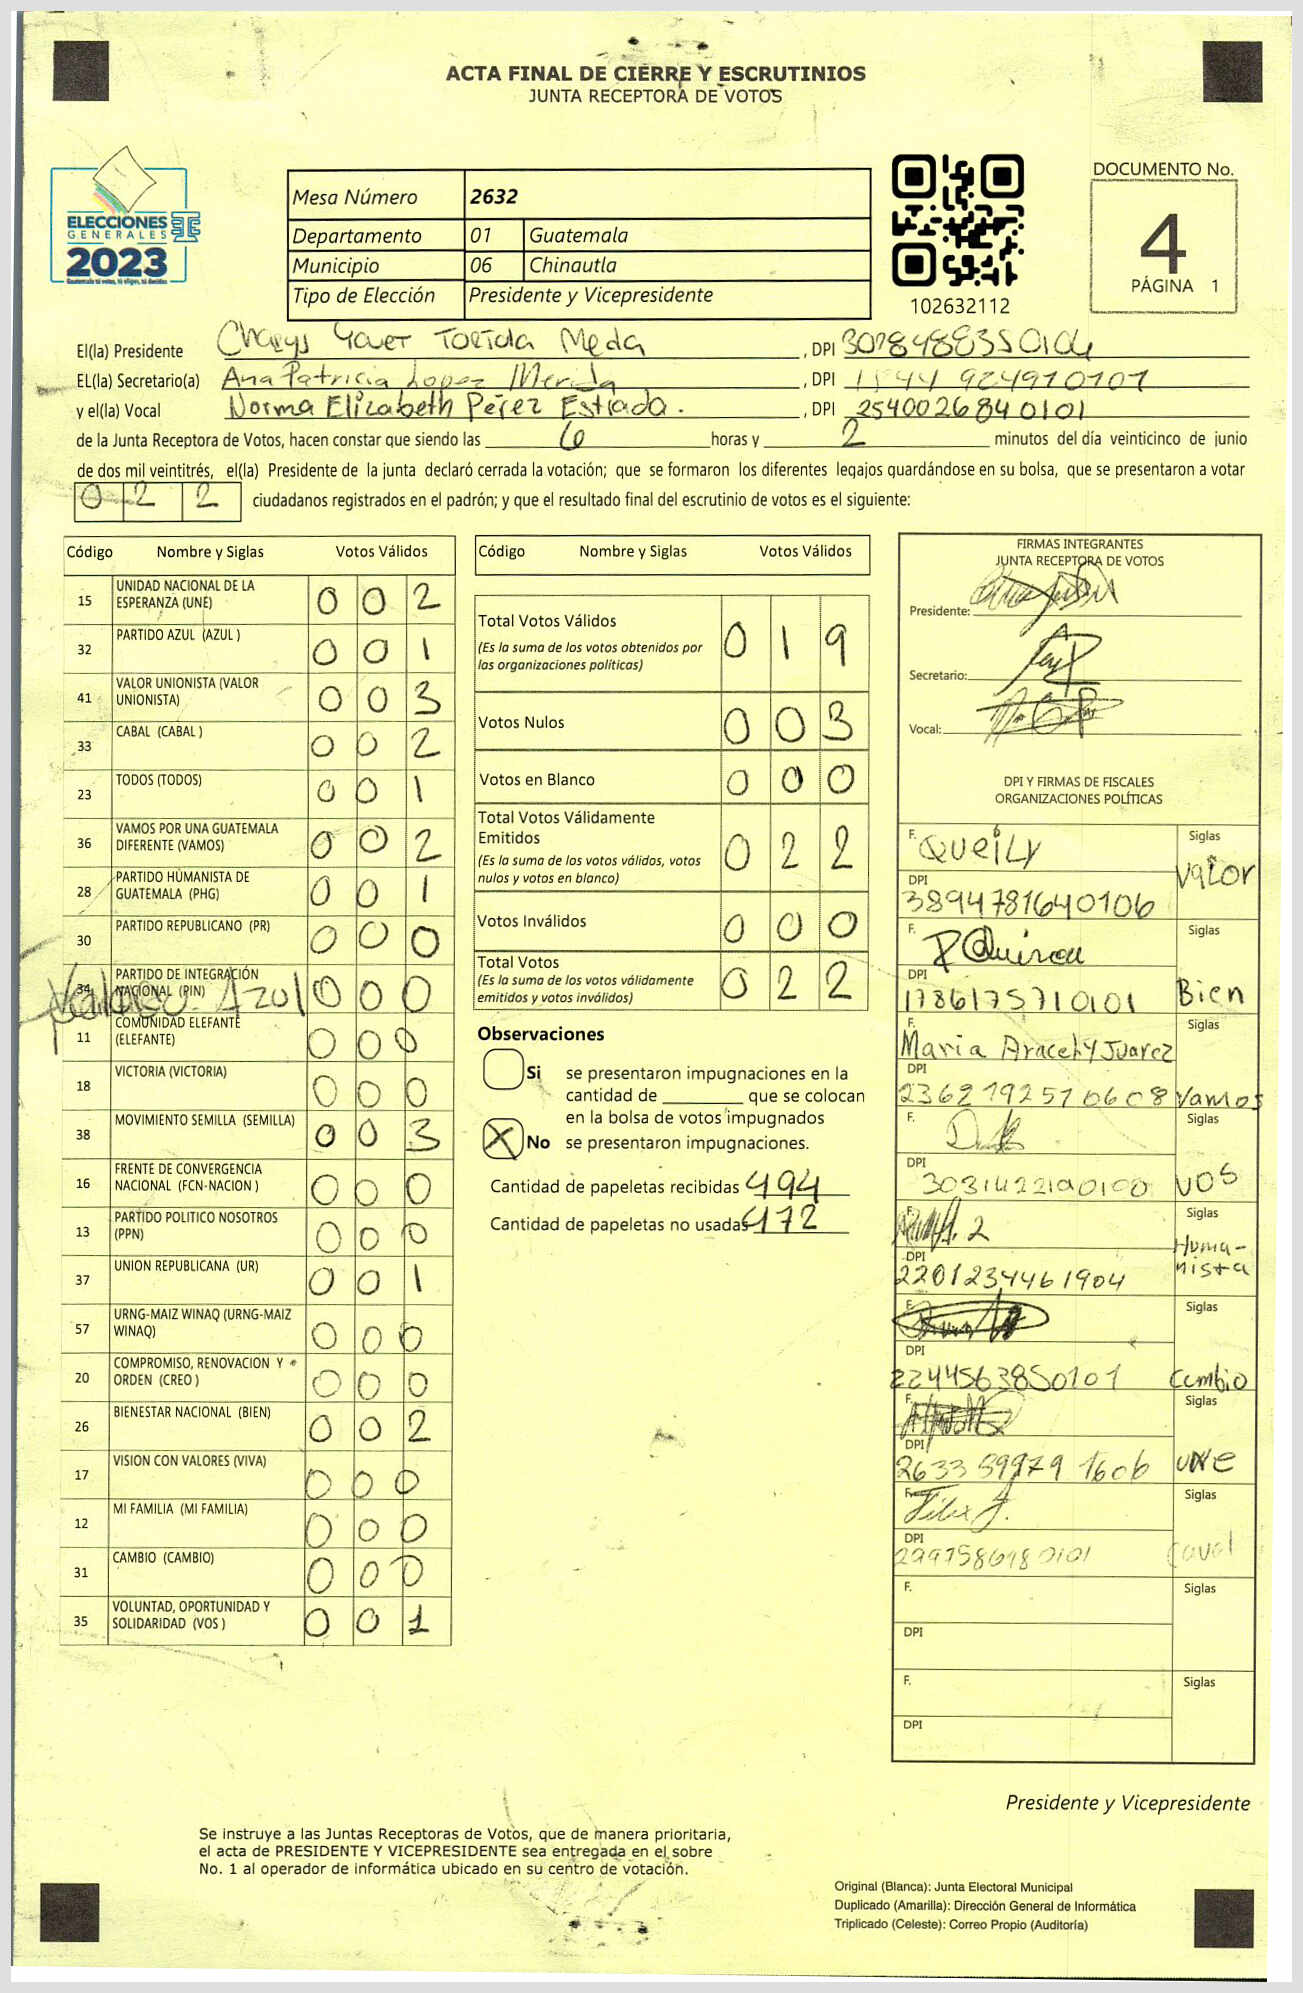 ACTA FINAL DE CIERRE Y ESCRUTINIOS
JUNTA RECEPTORA DE VOTOS
ELECCIONES
GENERALES
2023
Guatemala tú votas, tú eliges, tú decides
Mesa Número 2632
Departamento 01 Guatemala
Municipio 06 Chinautla
Tipo de Elección Presidente y Vicepresidente
102632112
DOCUMENTO No.
4
PÁGINA 1
El(la) Presidente Meda , DPI
EL(la) Secretario(a) Ana Patricia Lopez Merida , DPI 1544 924910101
y el(la) Vocal Norma Elizabeth Pérez Estrada. , DPI 2540026840101
de la Junta Receptora de Votos, hacen constar que siendo las 6 horas y 2 minutos del día veinticinco de junio
de dos mil veintitrés, el(la) Presidente de la junta declaró cerrada la votación; que se formaron los diferentes legajos guardándose en su bolsa, que se presentaron a votar
0 2 2 ciudadanos registrados en el padrón; y que el resultado final del escrutinio de votos es el siguiente:
Código Nombre y Siglas Votos Válidos
15 UNIDAD NACIONAL DE LA ESPERANZA (UNE) 0 0 2
32 PARTIDO AZUL (AZUL ) 0 0 1
41 VALOR UNIONISTA (VALOR UNIONISTA) 0 0 3
33 CABAL (CABAL ) 0 0 2
23 TODOS (TODOS) 0 0 1
36 VAMOS POR UNA GUATEMALA DIFERENTE (VAMOS) 0 0 2
28 PARTIDO HUMANISTA DE GUATEMALA (PHG) 0 0 1
30 PARTIDO REPUBLICANO (PR) 0 0 0
34 PARTIDO DE INTEGRACIÓN NACIONAL (PIN) 0 0 0
Azul
11 COMUNIDAD ELEFANTE (ELEFANTE) 0 0 0
18 VICTORIA (VICTORIA) 0 0 0
38 MOVIMIENTO SEMILLA (SEMILLA) 0 0 3
16 FRENTE DE CONVERGENCIA NACIONAL (FCN-NACION ) 0 0 0
13 PARTIDO POLITICO NOSOTROS (PPN) 0 0 0
37 UNION REPUBLICANA (UR) 0 0 1
57 URNG-MAIZ WINAQ (URNG-MAIZ WINAQ) 0 0 0
20 COMPROMISO, RENOVACION Y ORDEN (CREO ) 0 0 0
26 BIENESTAR NACIONAL (BIEN) 0 0 2
17 VISION CON VALORES (VIVA) 0 0 0
12 MI FAMILIA (MI FAMILIA) 0 0 0
31 CAMBIO (CAMBIO) 0 0 0
35 VOLUNTAD, OPORTUNIDAD Y SOLIDARIDAD (VOS ) 0 0 1
Código Nombre y Siglas Votos Válidos
Total Votos Válidos 0 1 9
(Es la suma de los votos obtenidos por
las organizaciones políticas)
Votos Nulos 0 0 3
Votos en Blanco 0 0 0
Total Votos Válidamente
Emitidos 0 2 2
(Es la suma de los votos válidos, votos
nulos y votos en blanco)
Votos Inválidos 0 0 0
Total Votos 0 2 2
(Es la suma de los votos válidamente
emitidos y votos inválidos)
Observaciones
Si se presentaron impugnaciones en la
cantidad de ________ que se colocan
en la bolsa de votos impugnados
X No se presentaron impugnaciones.
Cantidad de papeletas recibidas 494
Cantidad de papeletas no usadas 472
FIRMAS INTEGRANTES
JUNTA RECEPTORA DE VOTOS
Presidente:
Secretario:
Vocal:
DPI Y FIRMAS DE FISCALES
ORGANIZACIONES POLÍTICAS
F. Queily Siglas
DPI Valor
3894781640106
F. Siglas
DPI
1786175710101 Bien
F. Siglas
Maria Aracely Juarez
DPI
2362192510608 Vamos
F. Siglas
DPI
VOS
F. Siglas
DPI Huma-
2201234461904 nista
F. Siglas
DPI
2244563850101 Cambio
F. Siglas
DPI
2633 59979 1606 UNE
F. Siglas
DPI
F. Siglas
DPI
F. Siglas
DPI
Presidente y Vicepresidente
Se instruye a las Juntas Receptoras de Votos, que de manera prioritaria,
el acta de PRESIDENTE Y VICEPRESIDENTE sea entregada en el sobre
No. 1 al operador de informática ubicado en su centro de votación.
Original (Blanca): Junta Electoral Municipal
Duplicado (Amarilla): Dirección General de Informática
Triplicado (Celeste): Correo Propio (Auditoría)